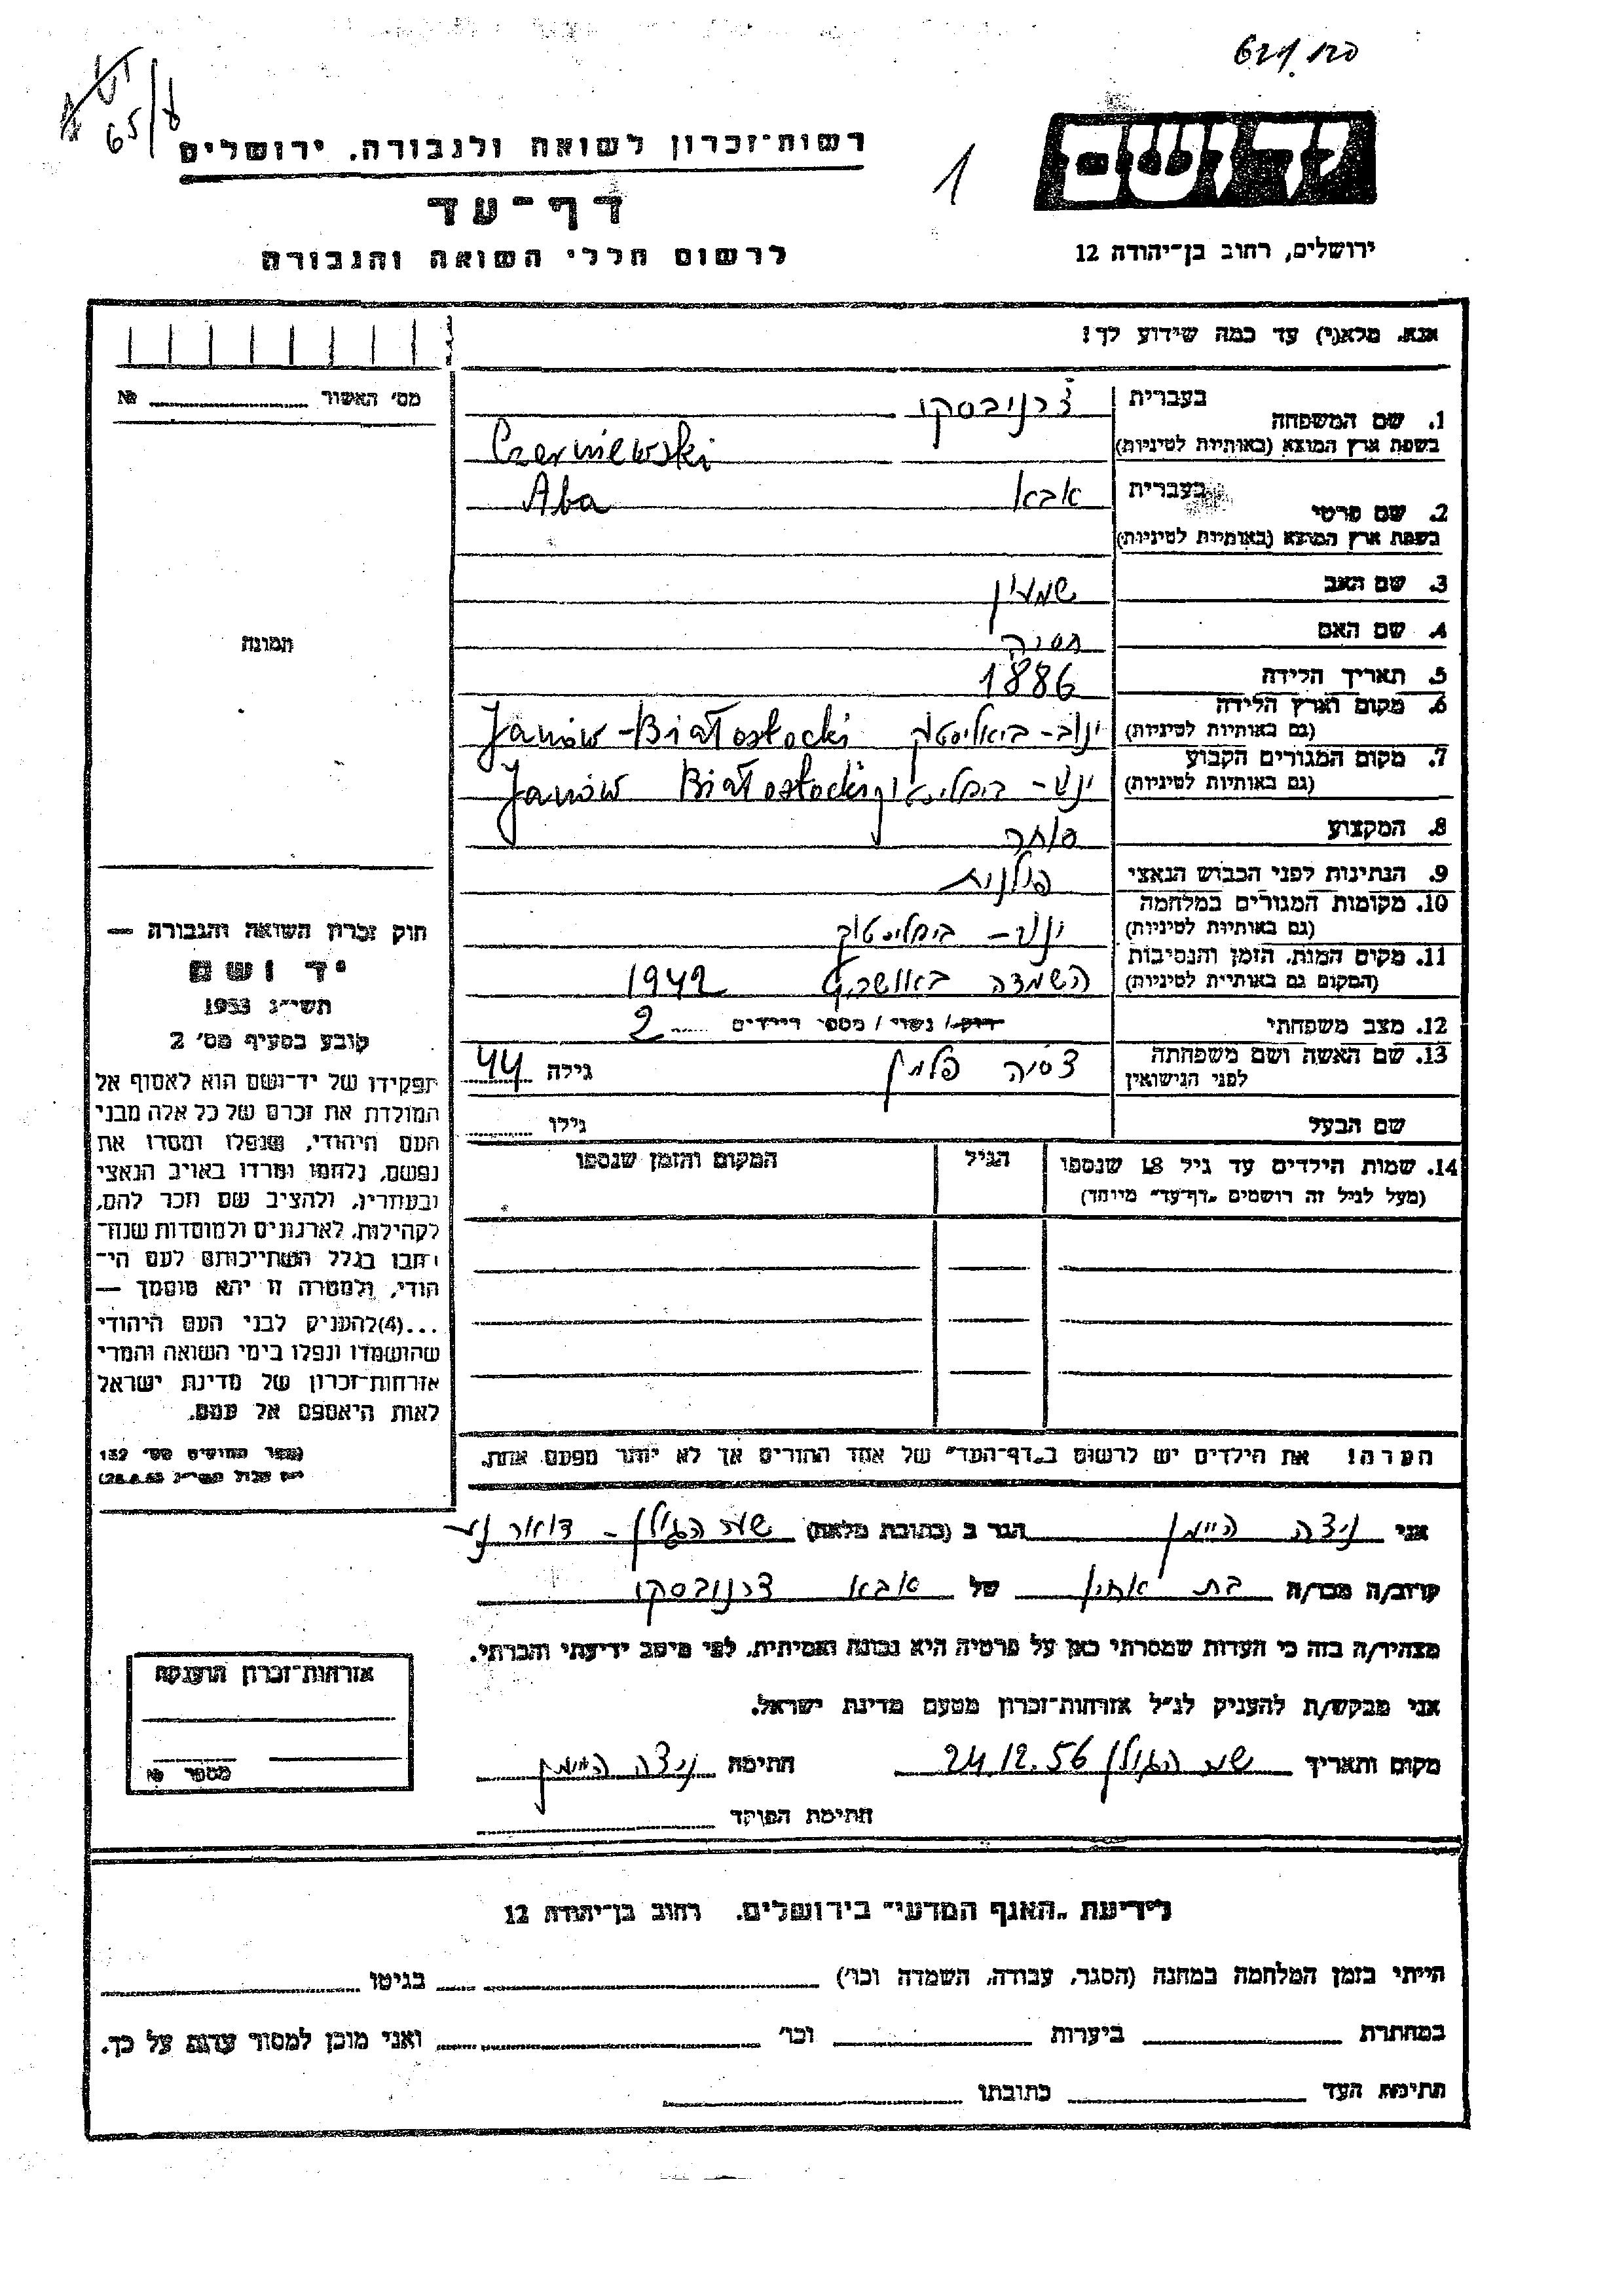 621.120
65/8
יד ושם
רשות־זכרון לשואה ולגבורה. ירושלים
1
דף־עד
ירושלים, רחוב בן־יהודה 12
לרשום חללי השואה והגבורה
אנא, מלא(י) עד כמה שידוע לך!
מס' האשור № 
1. שם המשפחה
בעברית צ'רניבסקי
בשפת ארץ המוצא (באותיות לטיניות) Czerniewski
2. שם פרטי
בעברית אבא Aba
בשפת ארץ המוצא (באותיות לטיניות)
3. שם האב שמעון
4. שם האם
תמונה
5. תאריך הלידה 1886
6. מקום וארץ הלידה
(גם באותיות לטיניות) ינוב- ביאליסטוק Janów-Białostocki
7. מקום המגורים הקבוע
(גם באותיות לטיניות) ינוב- Janów Białostocki
8. המקצוע סוחר
9. הנתינות לפני הכבוש הנאצי פולנית
10. מקומות המגורים במלחמה
(גם באותיות לטיניות) ינוב-
11. מקום המות, הזמן והנסיבות
(המקום גם באותיות לטיניות) השמדה באושביץ 1942
12. מצב משפחתי רווק/ נשוי / מספר הילדים 2
13. שם האשה ושם משפחתה
לפני הנישואין גילה 44
שם הבעל גילו
14. שמות הילדים עד גיל 18 שנספו
(מעל לגיל זה רושמים „דף־עד" מיוחד)
הגיל
המקום והזמן שנספו
חוק זכרון השואה והגבורה —
יד ושם
תשי״ג 1953
קובע בסעיף מס' 2
תפקידו של יד־ושם הוא לאסוף אל
המולדת את זכרם של כל אלה מבני
העם היהודי, שנפלו ומסרו את
נפשם, נלחמו ומרדו באויב הנאצי
ובעוזריו, ולהציב שם וזכר להם,
לקהילות, לארגונים ולמוסדות שנח־
רבו בגלל השתייכותם לעם הי־
הודי, ולמטרה זו יהא מוסמך —
...(4)להעניק לבני העם היהודי
שהושמדו ונפלו בימי השואה והמרי
אזרחות־זכרון של מדינת ישראל
לאות היאספם אל עמם.
(ספר החוקים מס' 132
הערה! את הילדים יש לרשום ב„דף־העד" של אחד ההורים אך לא יותר מפעם אחת.
אני ניצה היימן הגר ב (כתובת מלאה) שער הגולן - דואר נע
קרוב/ה מכר/ה בת אחיו של אבא צ'רניבסקי
מצהיר/ה בזה כי העדות שמסרתי כאן על פרטיה היא נכונה ואמיתית, לפי מיטב ידיעתי והכרתי.
אני מבקש/ת להעניק לנ״ל אזרחות־זכרון מטעם מדינת ישראל.
מקום ותאריך שער הגולן 24.12.56 חתימה ניצה היימן
חתימת הפוקד
אזרחות־זכרון הוענקה
מספר №
לידיעת „האגף המדעי" בירושלים. רחוב בן־יהודה 12
הייתי בזמן המלחמה במחנה (הסגר, עבודה, השמדה וכו') בגיטו
במחתרת ביערות וכו' ואני מוכן למסור עדות על כך.
חתימת העד כתובתו